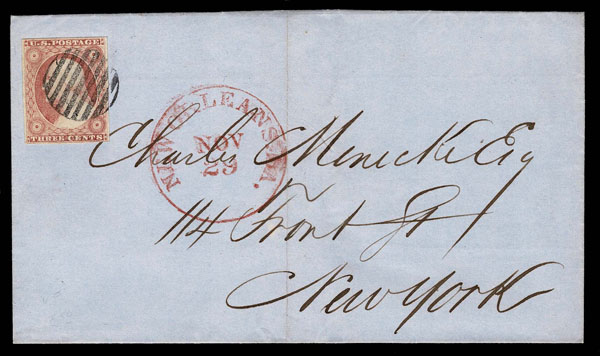 U.S. POSTAGE
THREE CENTS
NEW ORLEANS LA.
NOV
29
Charles Menecke Esq
114 Front St
New York